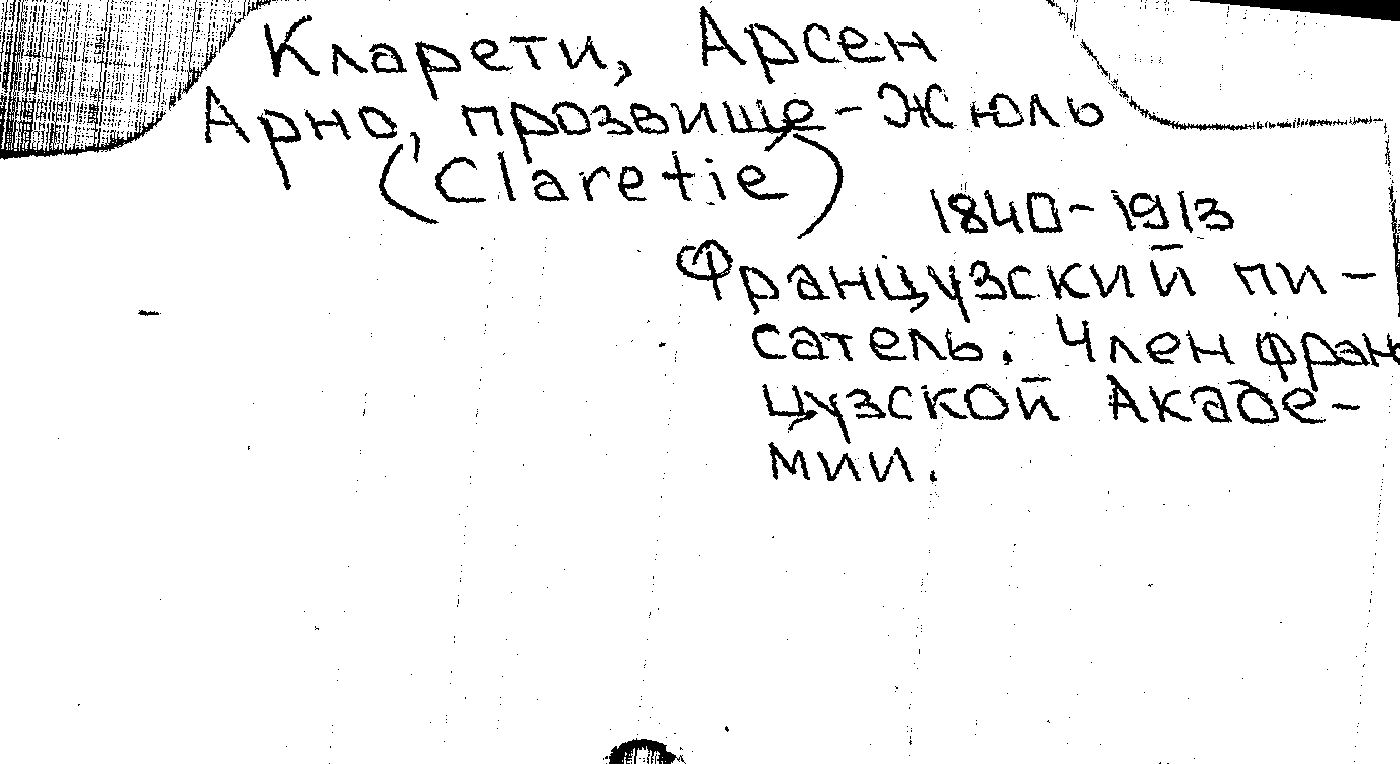 Кларети, Арсен
Арно, прозвище-Жюль
(Claretie)
1840-1913
Французский пи-
сатель. Член фран
цузской Акаде-
мии.